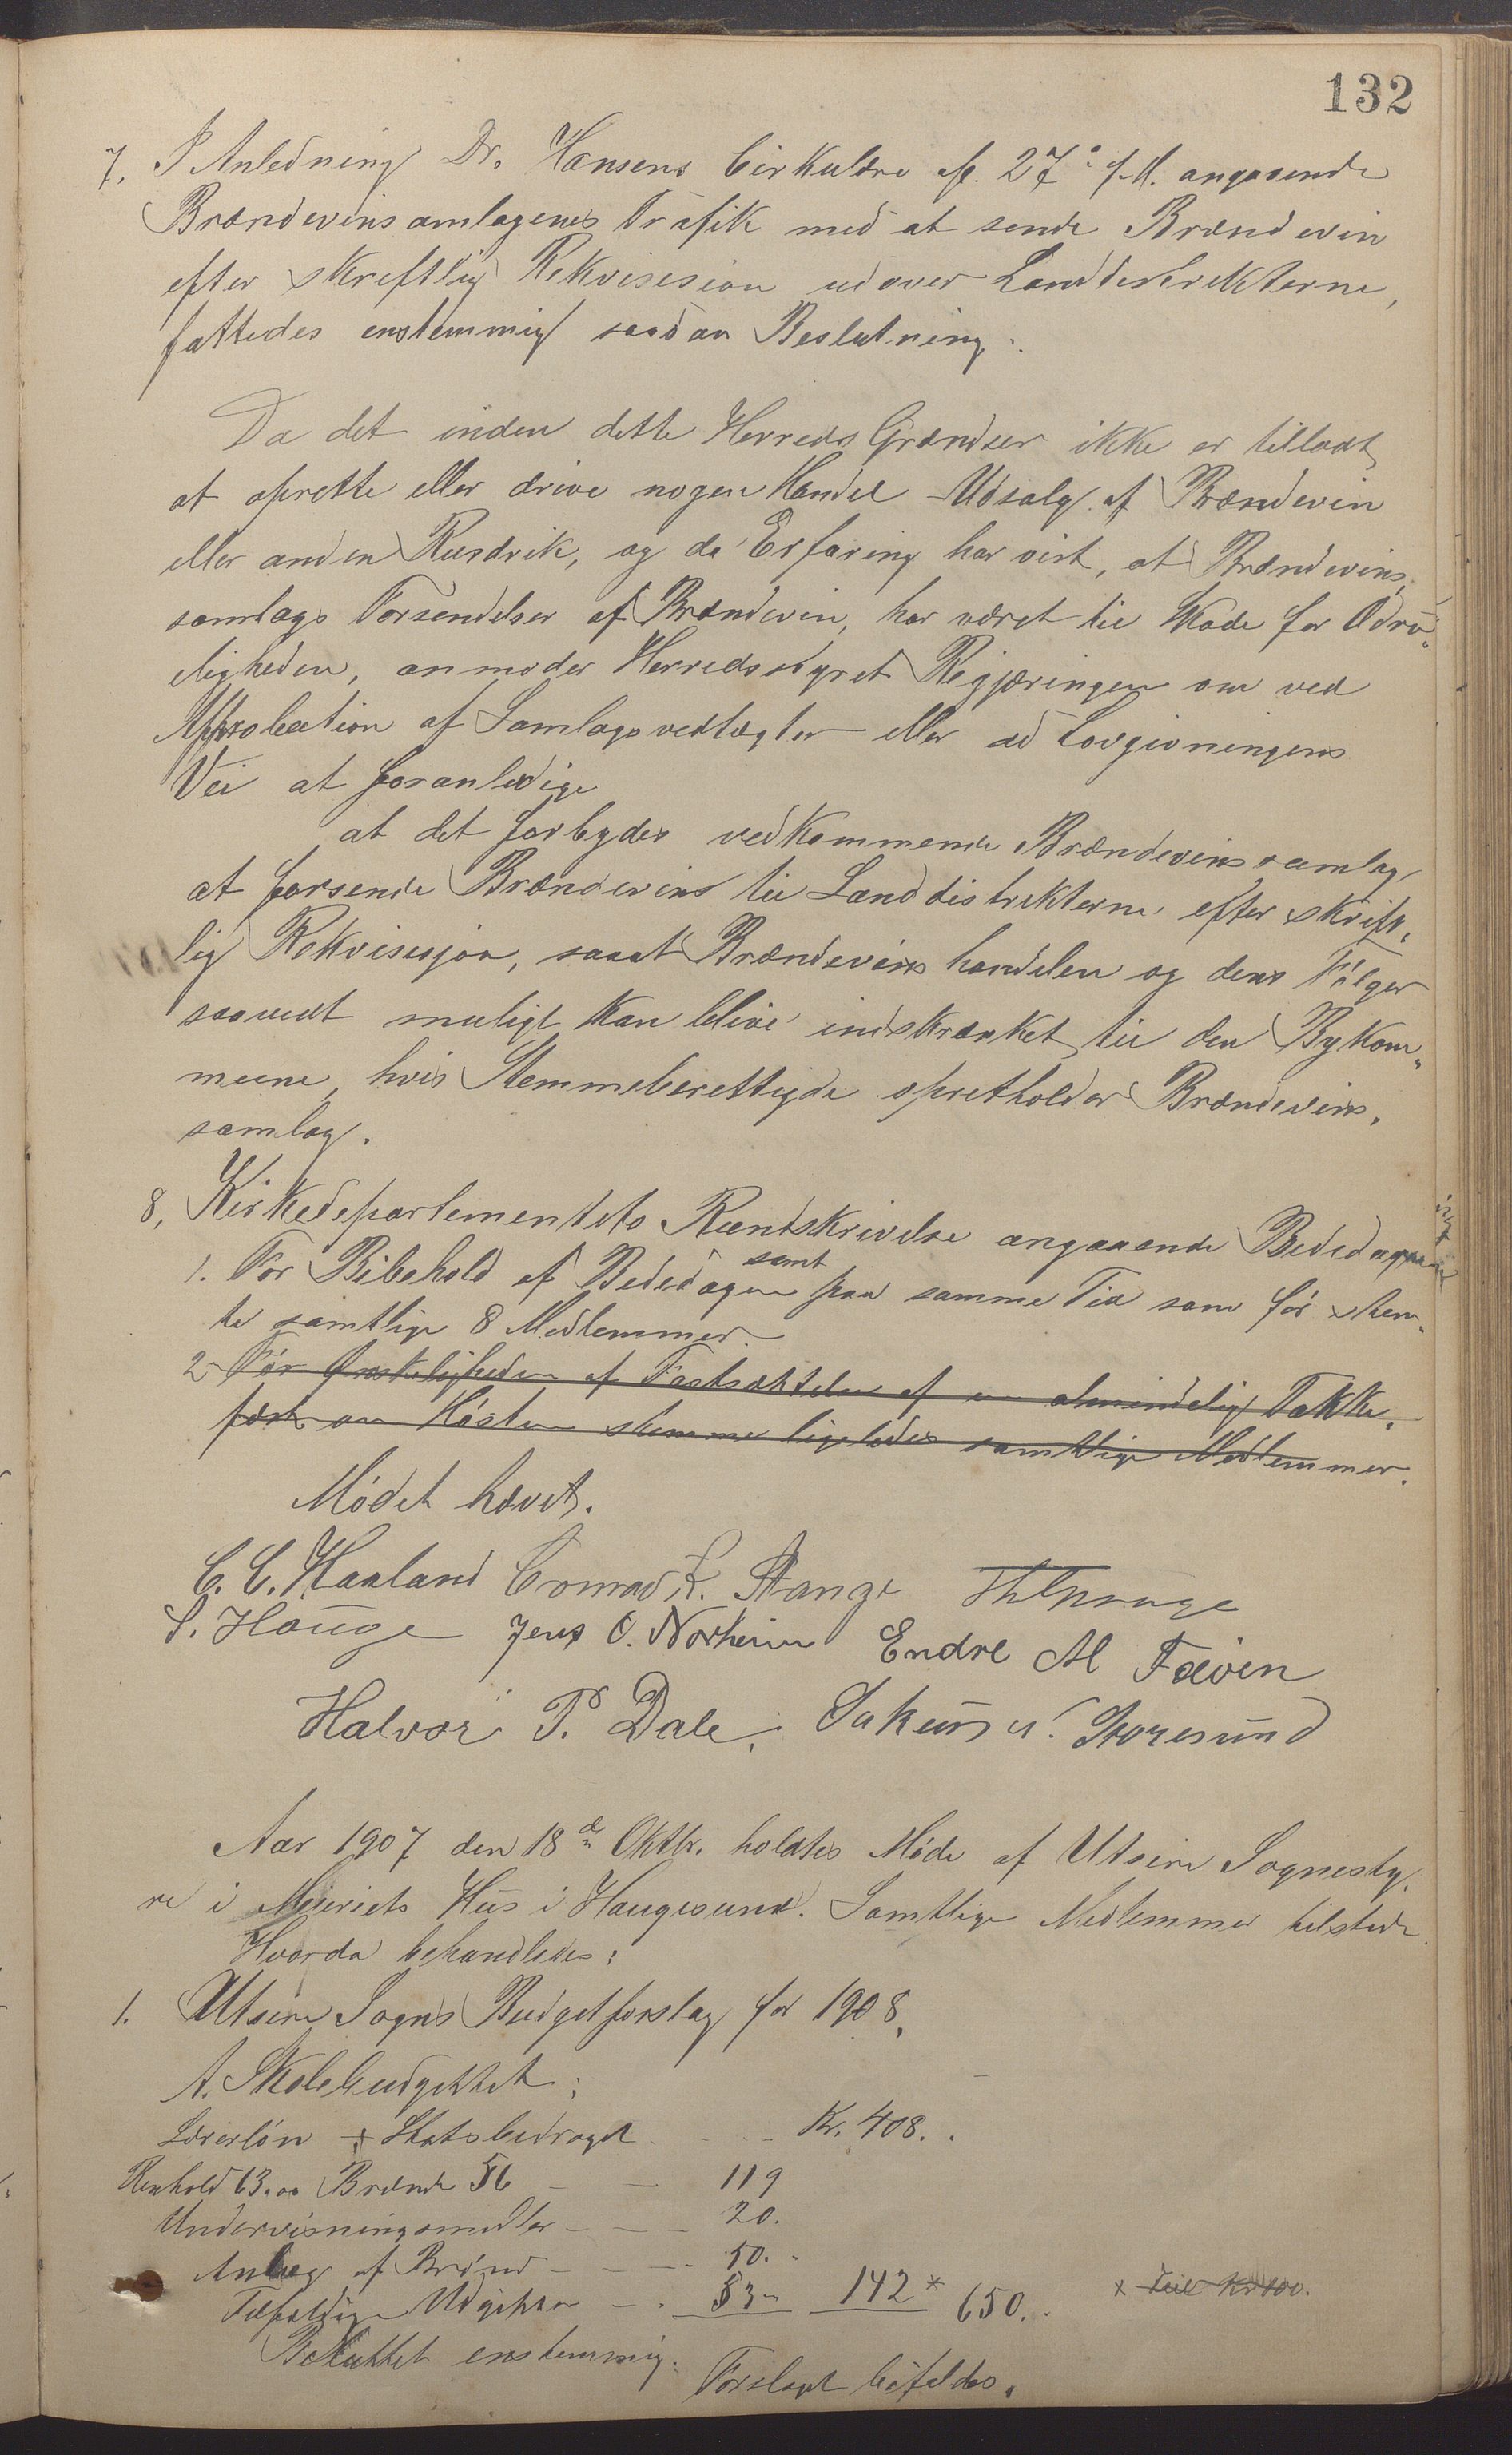 132
7. I Anledning Dr. Hansens Cirkulære af 27de f.M. angaaende
Brændevinsamlagenes Trafik med at sende Brændevin
efter skreftlig Rekvisesion udover Landdistrikterne,
fattedes enstemmig saadan Beslutning:
Da det inden dette Herreds Grændser ikke er tilladt
at oprette eller drive nogen Handel - Udsalg af Brændevin
eller anden Rusdrik, og da Erfaring har vist, at Brændevins
samlags Forsendelser af Brændevin, har været til Skade for Ædru„
eligheden, anmoder Herredsstyret Regjæringen om ved
Approbation af Samlagsvedtægter eller ad Lovgivningens
Vei at foranledige
at det forbydes vedkommende Brændevinssamlag
at forsende Brændevins til Landdistrikterne efter skrift„
lig Rekvisesjon, saaat Brændevins handelen og dens Følger
saavidt muligt kan blive indskrænket til den Bykom„
mune, hvis Stemmeberettigde opretholder Brændevins„
samlag.
8, Kirkedepartementets Rundskrivelse angaaende Bededagene
1. For Bibehold af Bededagene samt paa samme Tid som før stem„
te samtlige 8 Medlemmer
2 For Ønskeligheden af Fastsættelse af en almindelig Takke„
fest om Høsten stemme ligeledes samtlige Medlemmer.
Mødet hævet.
C. C. Haaland Conrad K. Stange
S. Hauge Jens O. Norheim Endre M Fæøen
Halvor P. Dale, Storesund
Aar 1907 den 18de Oktbr. holdtes Møde af Utsire Sognesty„
re i Meieriets Hus i Haugesund. Samtlige Medlemmer tilstede.
Hvorda behandledes:
1. Utsire Sogns Budgetforslag for 1908,
A. Skolebudgettet:
Lærerløn + Statsbidraget - - - Kr. 408. .
Renhold 63.00 Brænde 56 - - 119
Undervisningsmidler - - - 20.
Anlæg af Brønd - - - - 50. -
Tilfældige Udgifter - - 53 - 142 * 650. -
x Feil Kr 100.
Besluttet enstemmig. Forslaget bifaldes.